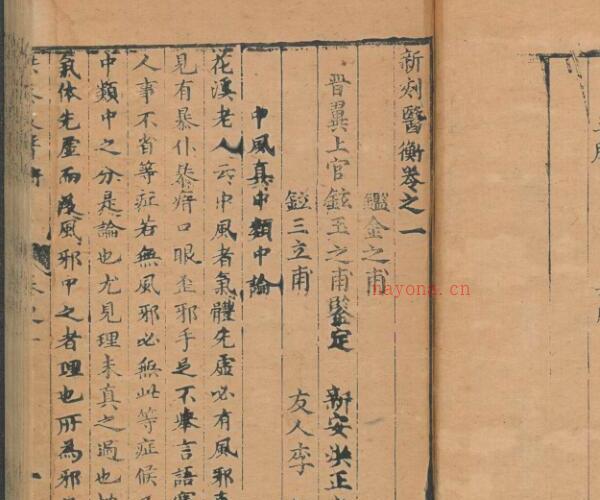 新刻醫衡卷之一
鑑金之甫
晋翼上官鉉玉之甫鑒定 新安洪正
鉝三立甫 友人李
中風真中類中論
花溪老人云中風者氣體先虛必有風邪
見有暴仆暴瘖口眼歪邪手足不舉言語
人事不省等症若無風邪必無此等症候
中類中之分是論也尤見理未真之過也
氣体先虛而後風邪中之者理也所為邪
卷之一
hayona.cn